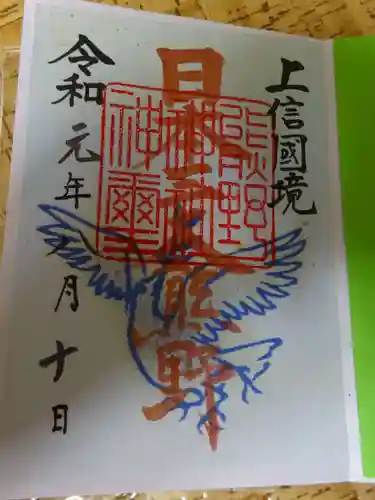 上信國境
日本三大熊野
熊野
神社
神爾
令和元年八月十日